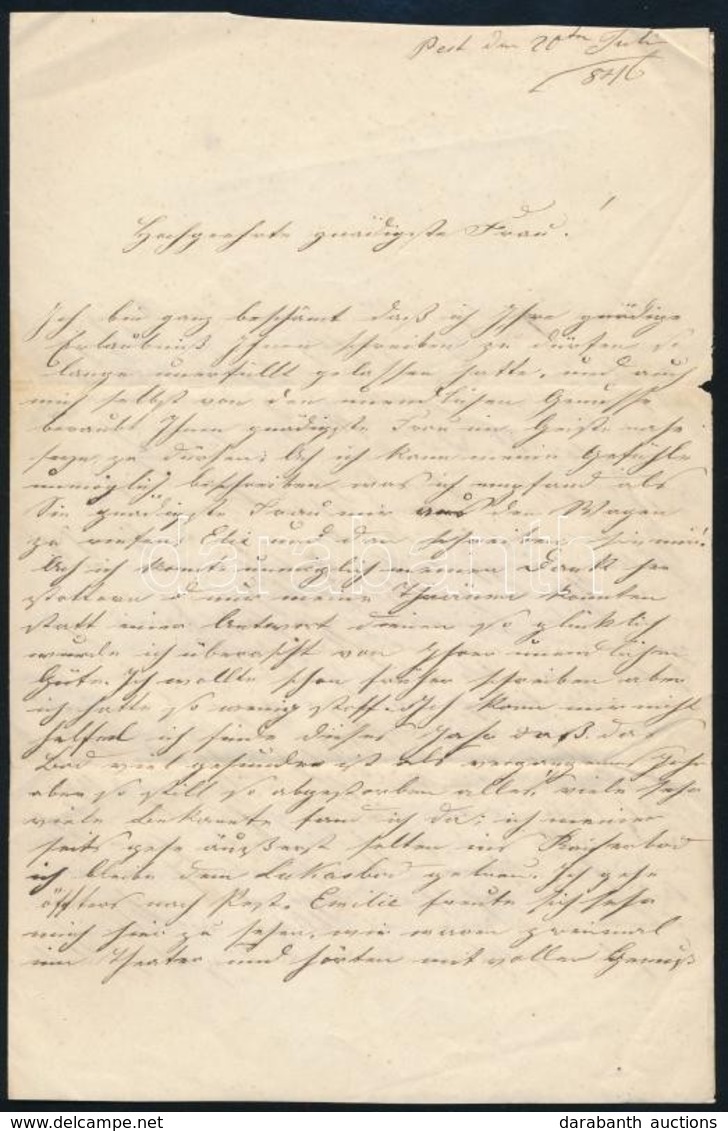 Pest den 20ten Juli
/846
Hochgeehrte gnädigste Frau!
Ich bin ganz beschämt daß ich Ihre gnädige
Erlaubniß Ihnen schreiben zu dürfen so
lange unerfüllt gelassen hatte, und auch
mich selbst von den unendlichen Genusse
beraubt Ihnen gnädigste Frau im Geiste nahe
zu dürfen; Ach ich kann meine Gefühle
unmöglich beschreiben was ich empfand als
Sie gnädigste Frau mir aus den Wagen
zu riefen: und dan schreiben Sie mir.
Ach ich konnte unmöglich meinen Dank her
stottern nur meine Thränen konnten
statt einer Antwort dienen so glücklich
wurde ich überrascht von Ihrer unendlichen
Güte. Ich wollte schon früher schreiben aber
ich hatte so wenig Stoff. Ich kann mir nicht
helfen ich finde dieses Jahr daß das
Bad viel gesunder ist als vergangenes Jahr
aber so still so abgestorben alles, viele sehr
viele Bekannte fand ich da; ich meiner
seits gehe äußerst selten ins Kaiserbad
ich bleibe dem Lukasbad getreu. Ich gehe
öffters nach Pest. Emilie freute sich sehr
mich hier zu sehen, wir waren zweimal
im Theater und hörten mit voller Genuß
darabanth
darabanth auctions